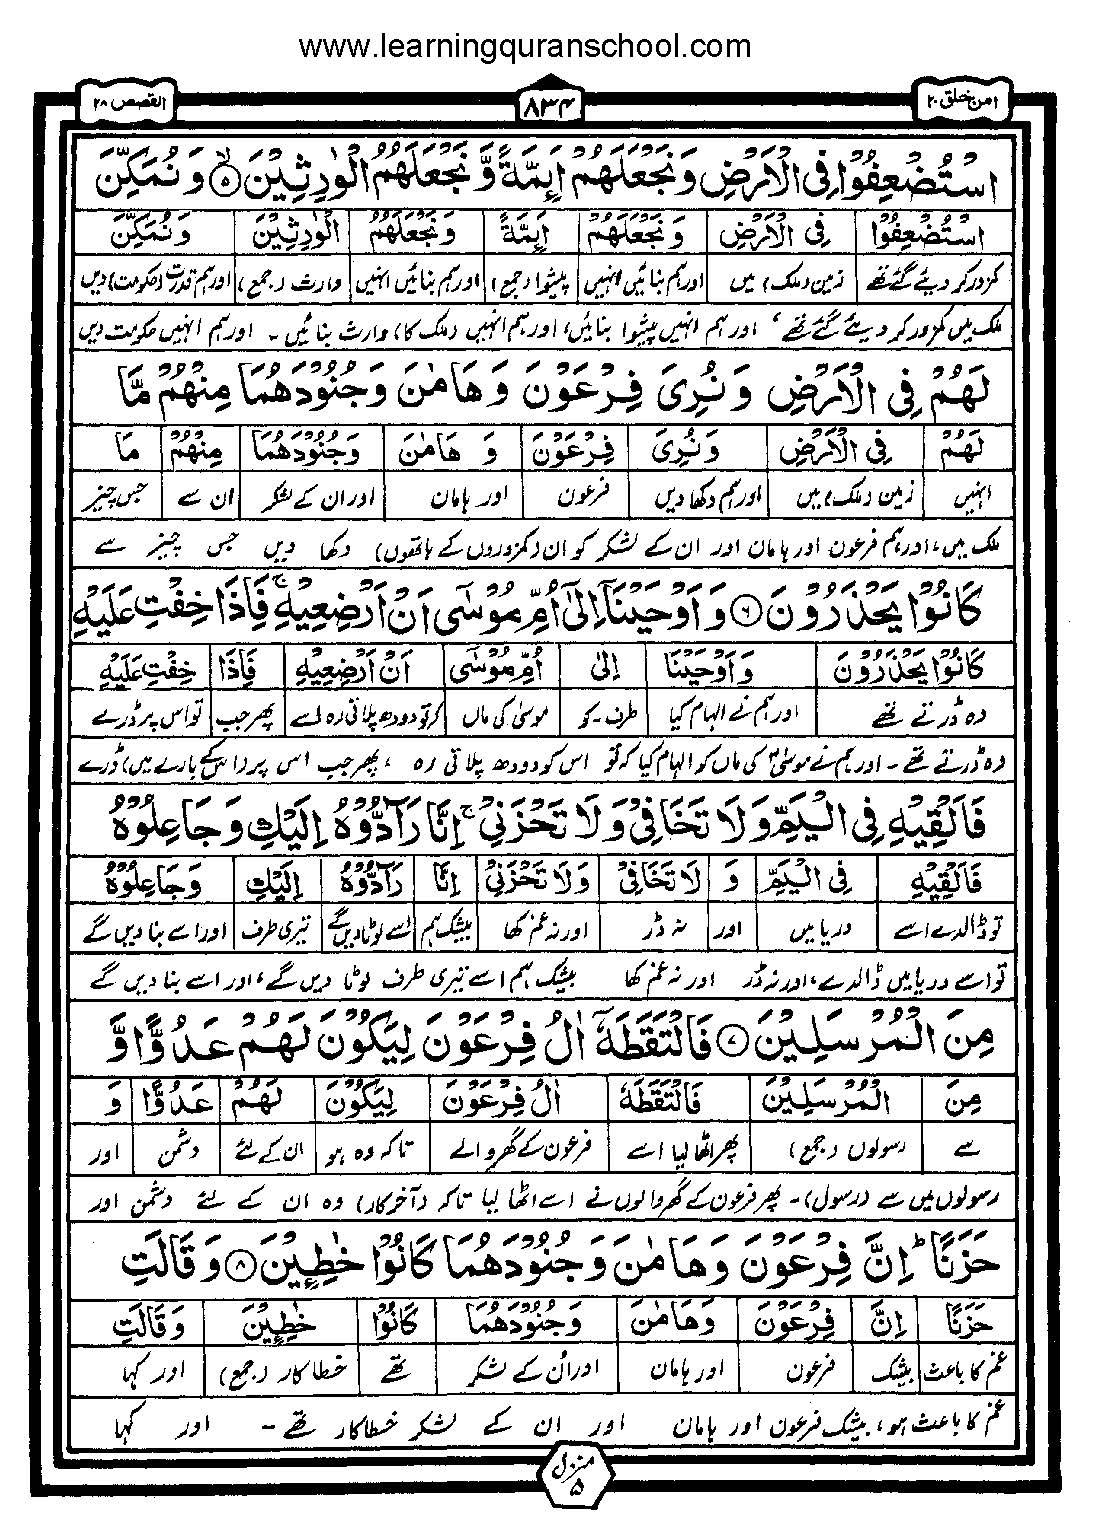 www.learningquranschool.com
امن خلق ۲۰
۸۳۴
القصص ۲۸
اسْتُضْعِفُوْا فِی الْاَرْضِ وَ نَجْعَلَهُمْ اَىِٕمَّةً وَّ نَجْعَلَهُمُ الْوٰرِثِیْنَ ۵ وَ نُمَكِّنَ
اسْتُضْعِفُوْا فِی الْاَرْضِ وَ نَجْعَلَهُمْ اَىِٕمَّةً وَ نَجْعَلَهُمُ الْوٰرِثِیْنَ وَ نُمَكِّنَ
کمزور کر دیئے گئے تھے زمین (ملک) میں اور ہم بنائیں انہیں پیشوا (جمع) اور ہم بنائیں انہیں وارث (جمع) اور ہم قدرت (حکومت) دیں
ملک میں کمزور کر دیئے گئے تھے، اور ہم انہیں پیشوا بنائیں، اور ہم انہیں (ملک کا) وارث بنائیں۔ اور ہم انہیں حکومت دیں
لَهُمْ فِی الْاَرْضِ وَ نُرِیَ فِرْعَوْنَ وَ هَامٰنَ وَ جُنُوْدَهُمَا مِنْهُمْ مَّا
لَهُمْ فِی الْاَرْضِ وَ نُرِیَ فِرْعَوْنَ وَ هَامٰنَ وَ جُنُوْدَهُمَا مِنْهُمْ مَا
انہیں زمین (ملک) میں اور ہم دکھا دیں فرعون اور ہامان اور ان کے لشکر ان سے جس چیز
ملک میں، اور ہم فرعون اور ہامان اور ان کے لشکر کو ان (کمزوروں کے ہاتھوں) دکھا دیں جس چیز سے
كَانُوْا یَحْذَرُوْنَ ۶ وَ اَوْحَیْنَاۤ اِلٰۤى اُمِّ مُوْسٰۤى اَنْ اَرْضِعِیْهِ ۚ فَاِذَا خِفْتِ عَلَیْهِ
كَانُوْا یَحْذَرُوْنَ وَ اَوْحَیْنَا اِلٰى اُمِّ مُوْسٰۤى اَنْ اَرْضِعِیْهِ فَاِذَا خِفْتِ عَلَیْهِ
وہ ڈرتے تھے اور ہم نے الہام کیا طرف۔کو موسیٰ کی ماں کہ تو دودھ پلاتی رہ اسے پھر جب تو اس پر ڈرے
وہ ڈرتے تھے۔ اور ہم نے موسیٰؑ کی ماں کو الہام کیا کہ تو اس کو دودھ پلاتی رہ، پھر جب اس پر (اس کے بارے میں) ڈرے
فَاَلْقِیْهِ فِی الْیَمِّ وَ لَا تَخَافِیْ وَ لَا تَحْزَنِیْ ۚ اِنَّا رَآدُّوْهُ اِلَیْكِ وَ جَاعِلُوْهُ
فَاَلْقِیْهِ فِی الْیَمِّ وَ لَا تَخَافِیْ وَ لَا تَحْزَنِیْ اِنَّا رَآدُّوْهُ اِلَیْكِ وَ جَاعِلُوْهُ
تو ڈالدے اسے دریا میں اور نہ ڈر اور نہ غم کھا بیشک ہم اسے لوٹا دیں گے تیری طرف اور اسے بنا دیں گے
تو اسے دریا میں ڈالدے، اور نہ ڈر اور نہ غم کھا بیشک ہم اسے تیری طرف لوٹا دیں گے، اور اسے بنا دیں گے
مِنَ الْمُرْسَلِیْنَ ۷ فَالْتَقَطَهٗۤ اٰلُ فِرْعَوْنَ لِیَكُوْنَ لَهُمْ عَدُوًّا وَّ
مِنَ الْمُرْسَلِیْنَ فَالْتَقَطَهٗ اٰلُ فِرْعَوْنَ لِیَكُوْنَ لَهُمْ عَدُوًّا وَ
سے رسولوں (جمع) پھر اٹھا لیا اسے فرعون کے گھر والے تاکہ وہ ہو ان کے لئے دشمن اور
رسولوں میں سے (رسول)۔ پھر فرعون کے گھر والوں نے اسے اٹھا لیا تاکہ (آخر کار) وہ ان کے لئے دشمن اور
حَزَنًا ؕ اِنَّ فِرْعَوْنَ وَ هَامٰنَ وَ جُنُوْدَهُمَا كَانُوْا خٰطِـِٕیْنَ ۸ وَ قَالَتِ
حَزَنًا اِنَّ فِرْعَوْنَ وَ هَامٰنَ وَ جُنُوْدَهُمَا كَانُوْا خٰطِـِٕیْنَ وَ قَالَتِ
غم کا باعث بیشک فرعون اور ہامان اور ان کے لشکر تھے خطا کار (جمع) اور کہا
غم کا باعث ہو، بیشک فرعون اور ہامان اور ان کے لشکر خطا کار تھے۔ اور کہا
منزل ۵